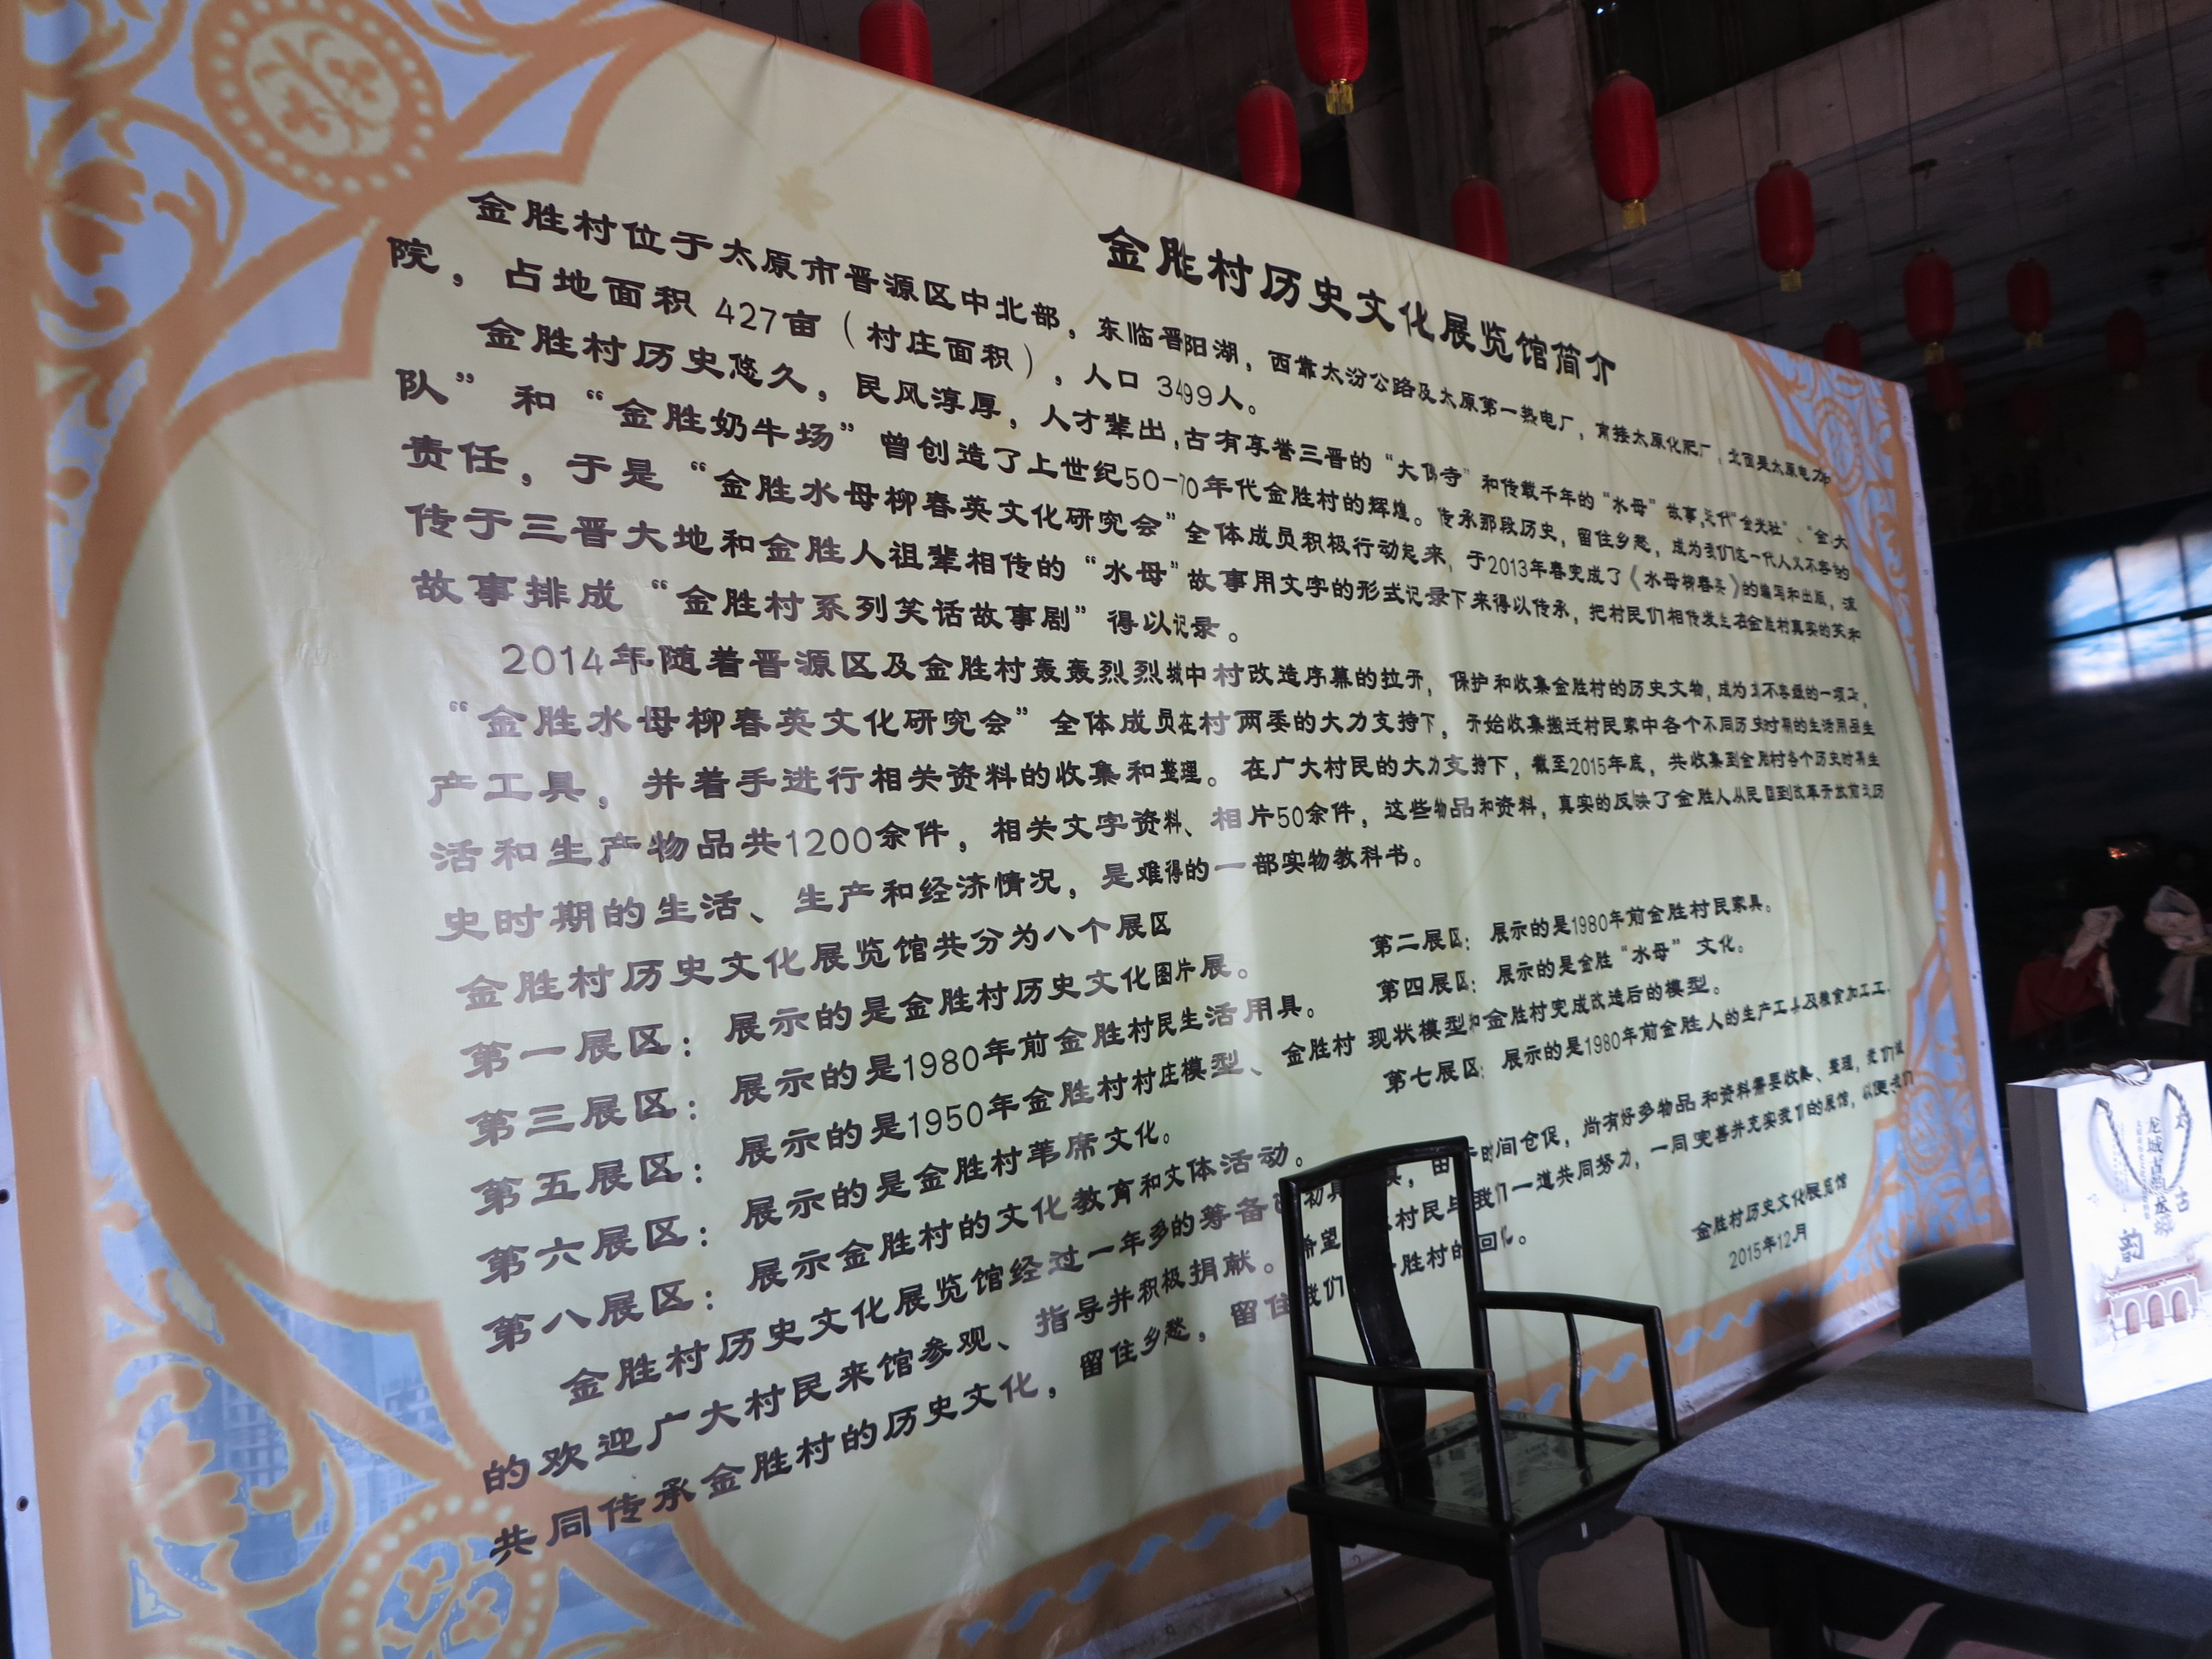 金胜村历史文化展览馆简介
金胜村位于太原市晋源区中北部，东临晋阳湖，西靠太汾公路及太原第一热电厂，南接太原化肥厂，北面是太原电力
院，占地面积 427亩（村庄面积），人口 3499人。
金胜村历史悠久，民风淳厚，人才辈出，古有享誉三晋的“大佛寺”和传载千年的“水母”故事，近代“金光社”、“金大
队”和“金胜奶牛场”曾创造了上世纪50-70年代金胜村的辉煌。传承那段历史，留住乡愁，成为我们这一代人义不容辞的
责任，于是“金胜水母柳春英文化研究会”全体成员积极行动起来，于2013年春完成了《水母柳春英》的编写和出版，流
传于三晋大地和金胜人祖辈相传的“水母”故事用文字的形式记录下来得以传承，把村民们相传发生在金胜村真实的笑和
故事排成“金胜村系列笑话故事剧”得以记录。
2014年随着晋源区及金胜村轰轰烈烈城中村改造序幕的拉开，保护和收集金胜村的历史文物，成为刻不容缓的一项工作，
“金胜水母柳春英文化研究会”全体成员在村两委的大力支持下，开始收集搬迁村民家中各个不同历史时期的生活用品生
产工具，并着手进行相关资料的收集和整理。在广大村民的大力支持下，截至2015年底，共收集到金胜村各个历史时期生
活和生产物品共1200余件，相关文字资料、相片50余件，这些物品和资料，真实的反映了金胜人从民国到改革开放前之历
史时期的生活、生产和经济情况，是难得的一部实物教科书。
金胜村历史文化展览馆共分为八个展区
第一展区：展示的是金胜村历史文化图片展。 第二展区：展示的是1980年前金胜村民家具。
第三展区：展示的是1980年前金胜村民生活用具。 第四展区：展示的是金胜“水母”文化。
第五展区：展示的是1950年金胜村村庄模型、金胜村 现状模型和金胜村完成改造后的模型。
第六展区：展示的是金胜村苇席文化。 第七展区：展示的是1980年前金胜人的生产工具及粮食加工工
第八展区：展示金胜村的文化教育和文体活动。
金胜村历史文化展览馆经过一年多的筹备已初具 ，由于时间仓促，尚有好多物品和资料需要收集、整理，我们
的欢迎广大村民来馆参观、指导并积极捐献。希望 村民与我们一道共同努力，一同完善并充实我们的展馆，以便我们
共同传承金胜村的历史文化，留住乡愁，留住我们 胜村的回忆。
金胜村历史文化展览馆
2015年12月
龙城古韵